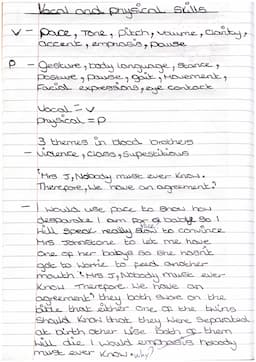 Vocal and physical skills
V - Pace, Tone, pitch, volume, clarity,
accent, emphasis, pause
P - Gesture, body language, stance,
posture, pause, gait, Movement,
Facial expressions, eye contact
Vocal = V
physical = P
3 themes in blood brothers
- violence, class, superstitious
"Mrs J, Nobody must ever know.
Therefore, we have an agreement"
- I would use pace to show how
desparate I am for a baby so I
will speak really slow to convince
Mrs Johnstone to let me have
one of her babys so she hasn't
got to worrie to feed another
mouth. "Mrs J, Nobody must ever
know. Therefore we have an
agreement" they both swore on the
bible that either one of the twins
should know that they were seperated
at birth other wise both of them
will die. I would emphasis nobody
must ever know. why?